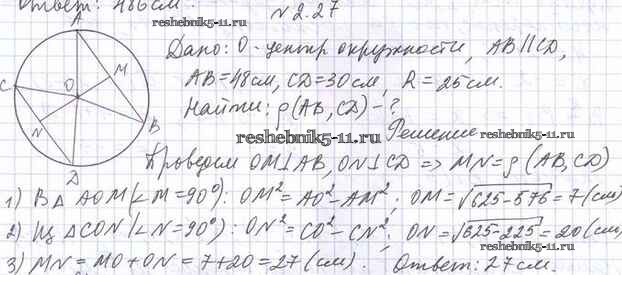 Ответ: 486см.
N 2.27
A
M
C
O
N
B
D
reshebnik5-11.ru
Дано: О-центр окружности, AB∥CD,
AB=48см, CD=30см, R=25см.
Найти: ρ(AB,CD)-?
reshebnik5-11.ru
Решение
Проведем OM⊥AB, ON⊥CD ⇒ MN=ρ(AB,CD)
1) В△AOM(∠M=90°): OM²=AO²-AM²; OM=√625-576=7(см)
2) Из △CON(∠N=90°): ON²=CO²-CN²; ON=√625-225=20(см)
3) MN=MO+ON=7+20=27(см). Ответ: 27см.
reshebnik5-11.ru